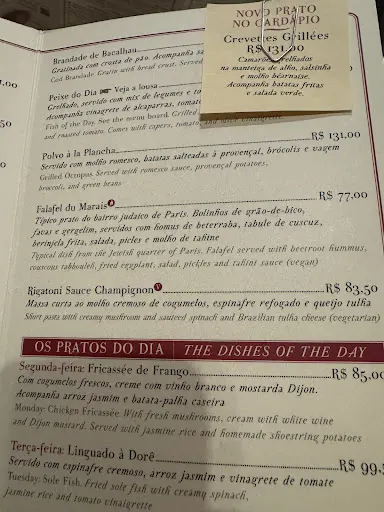 NOVO PRATO
NO CARDÁPIO
Crevettes Grillées
R$ 131,00
Camarões grelhados
na manteiga de alho, salsinha
e molho béarnaise.
Acompanha batatas fritas
e salada verde.
Brandade de Bacalhau
Gratinada com crosta de pão. Acompanha sa
Cod Brandade Gratin with bread crust. Served
Peixe do Dia ☛ Veja a lousa
Grelhado, servido com mix de legumes e to
Acompanha vinagrete de alcaparras, tomate
Fish of the Day. See the menu board. Grilled
and roasted tomato. Comes with capers, tomato, and olive vinaigrette
Polvo à la Plancha R$ 131,00
Servido com molho romesco, batatas salteadas à provençal, brócolis e vagem
Grilled Octopus. Served with romesco sauce, provençal potatoes,
broccoli, and green beans
Falafel du Marais R$ 77,00
Típico prato do bairro judaico de Paris. Bolinhos de grão-de-bico,
favas e gergelim, servidos com homus de beterraba, tabule de cuscuz,
berinjela frita, salada, picles e molho de tahine
Typical dish from the Jewish quarter of Paris. Falafel served with beetroot hummus,
couscous tabbouleh, fried eggplant, salad, pickles and tahini sauce (vegan)
Rigatoni Sauce Champignon V R$ 83,50
Massa curta ao molho cremoso de cogumelos, espinafre refogado e queijo tulha
Short pasta with creamy mushroom and sauteed spinach and Brazilian tulha cheese (vegetarian)
OS PRATOS DO DIA THE DISHES OF THE DAY
Segunda-feira: Fricassée de Frango R$ 85,00
Com cogumelos frescos, creme com vinho branco e mostarda Dijon.
Acompanha arroz jasmim e batata-palha caseira
Monday: Chicken Fricassée. With fresh mushrooms, cream with white wine
and Dijon mustard. Served with jasmine rice and homemade shoestring potatoes
Terça-feira: Linguado à Dorê R$ 99,
Servido com espinafre cremoso, arroz jasmim e vinagrete de tomate
Tuesday: Sole Fish. Fried sole fish with creamy spinach,
jasmine rice and tomato vinaigrette